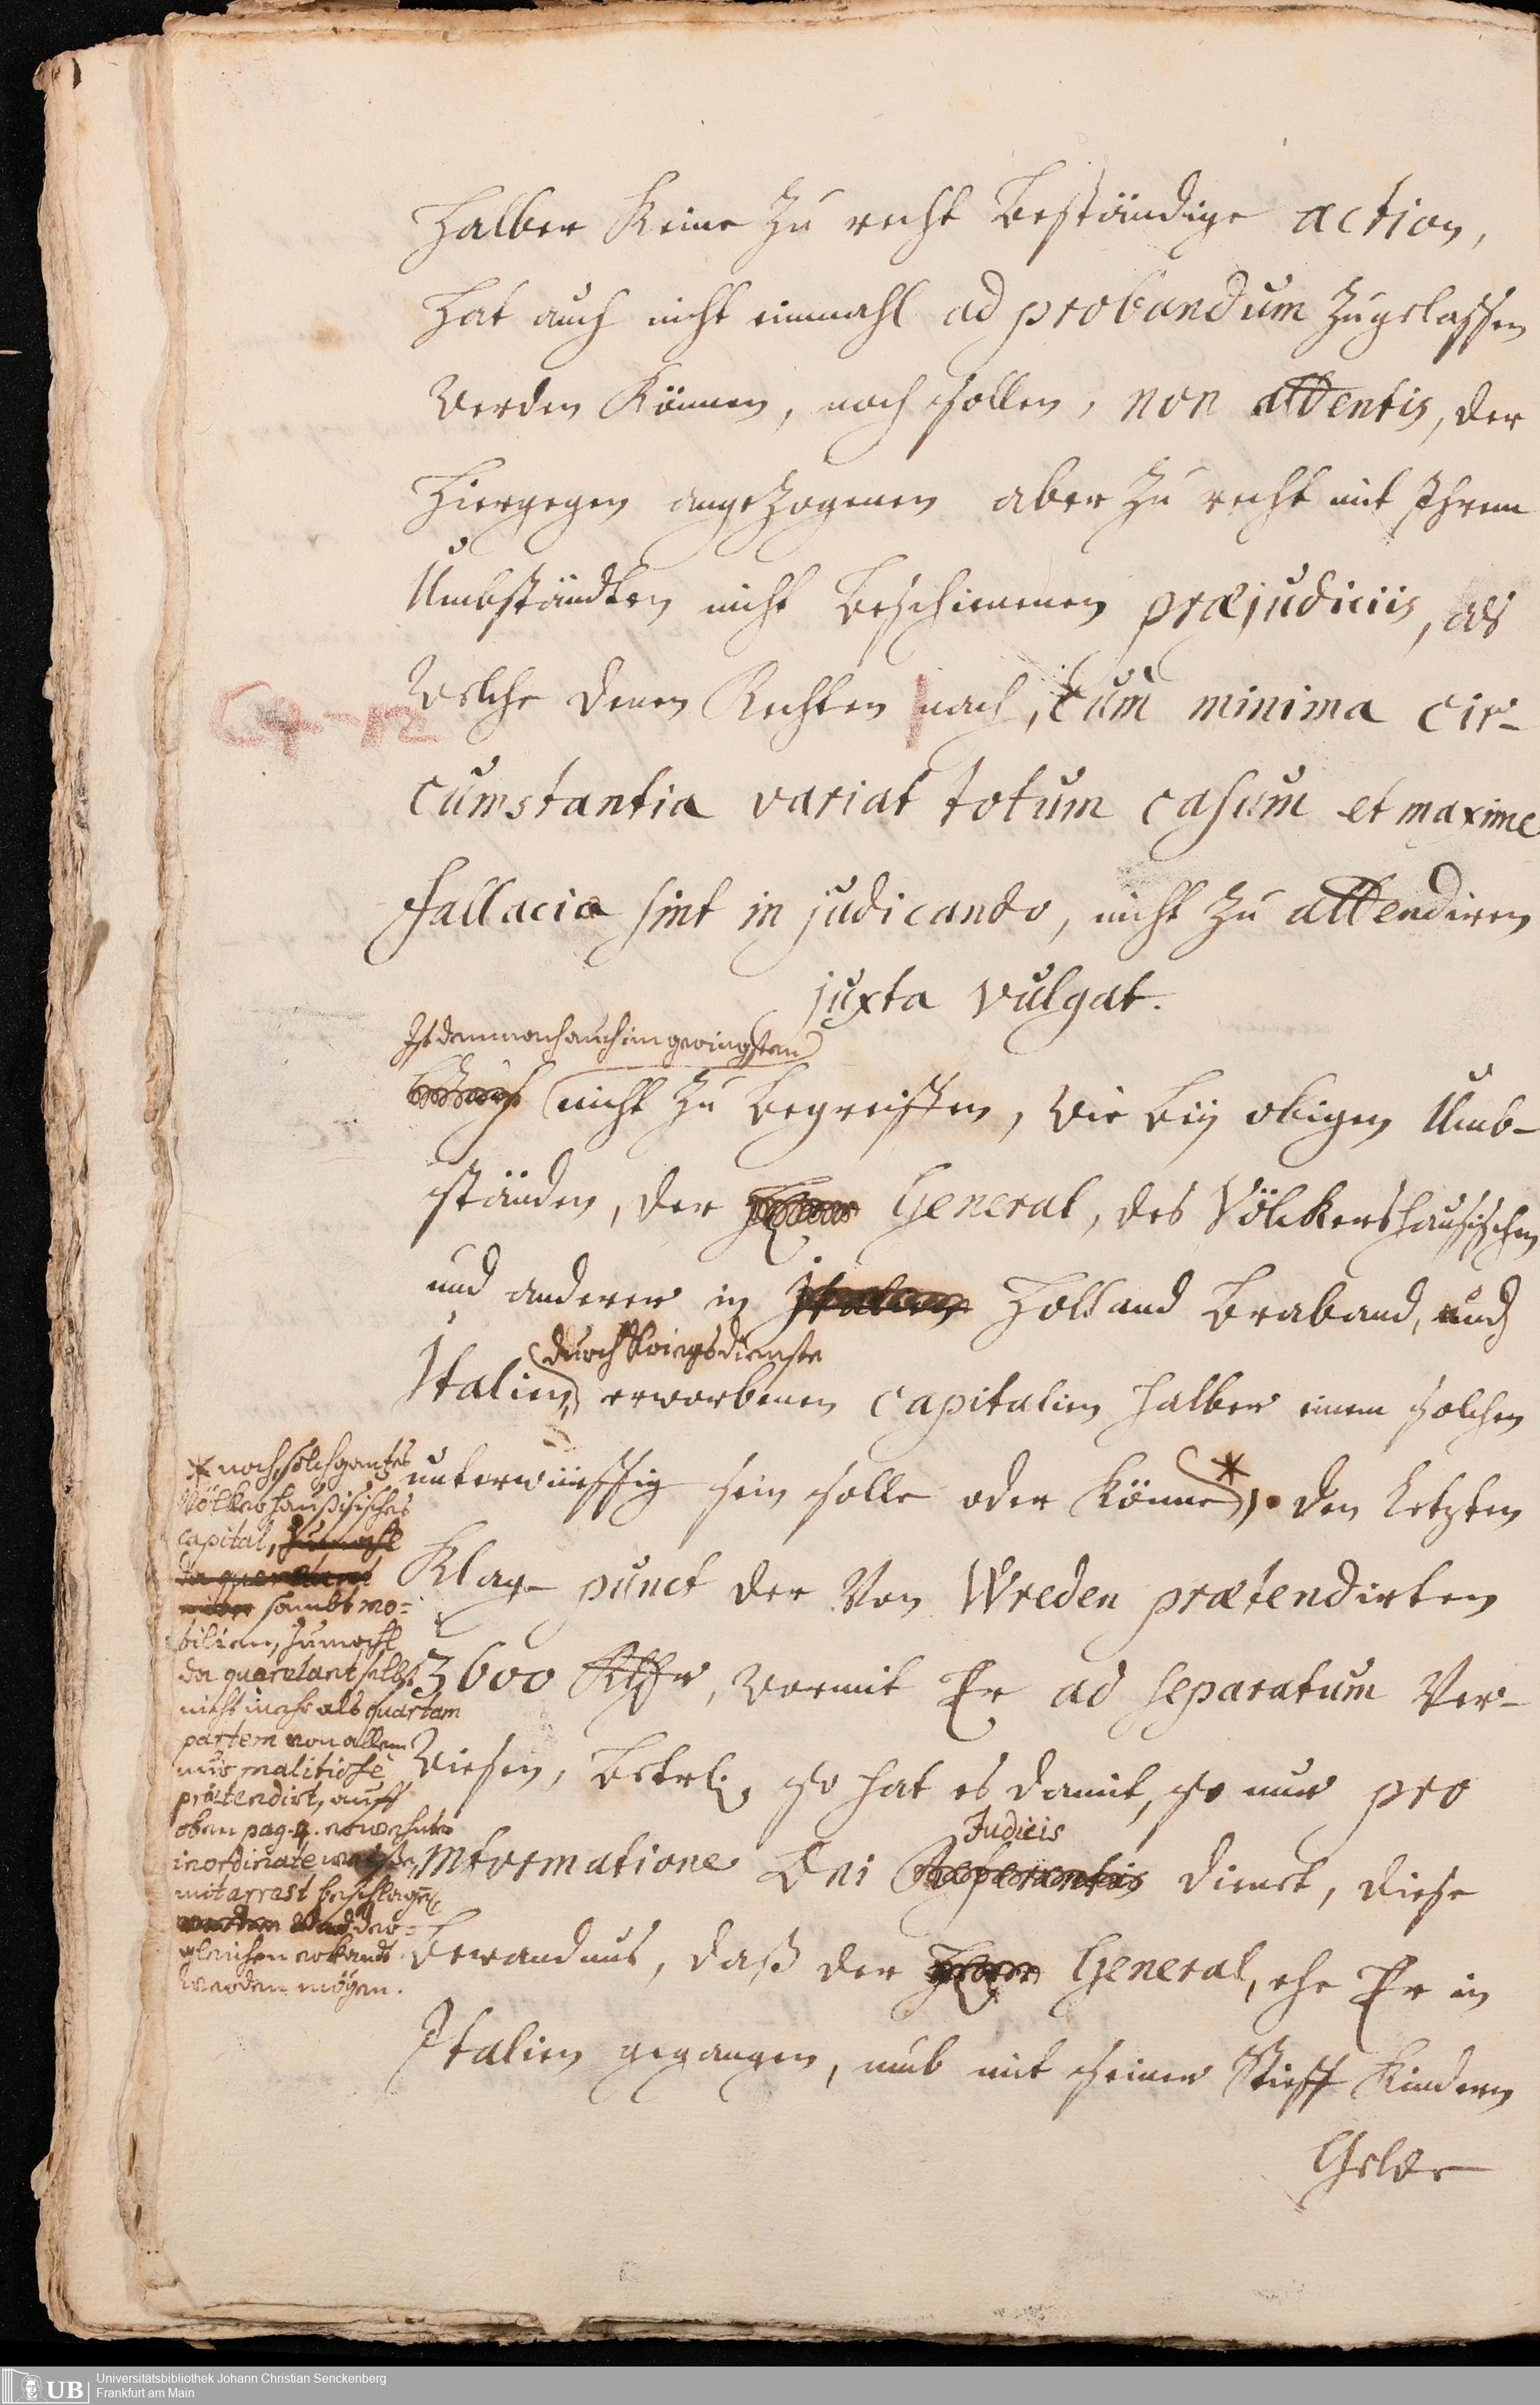 halber Keine zu recht beständige action,
hat auch nicht einmahl ad probandum zugelassen
werden Können, noch sollen, non attentis, der
hiergegen angezogenen aber zu recht mit Ihren
Umbständten nicht beschienenen præjudiciis, als
welche denen Rechten nach, cum minima cir-
cumstantia variat totum casum et maxime
fallacia sint in judicando, nicht zu attendiren
juxta vulgat.
Ist demnach auch im geringsten
nicht zu begreiffen, wie bey obigen Umb-
ständen, der General, des Völckershausischen
und anderer in Italien Holland Braband, und
durch Kriegsdienste
Italien, erworbenen capitalien halber einem solchen
unterwürffig sein solle oder Könne *, den Letzten
Klag- punct der Von Wreden prætendirten
3600 Rthlr, wormit Er ad separatum Ver-
wiesen, betrl. so hat es damit, so nur pro
Judicis
informatione Dni Referentis dienet, diese
bewandnus, daß der Herr General, ehe Er in
Italien gegangen, umb mit seinen Stieff Kindern
Gelde
* noch solch gantzes
Völkershaußisches
capital, zumahl
da querulant
sambt mo-
bilien, zumahl
da querulant selbst
nicht mehr als quartam
partem von allem
nur malitiose
prætendirt, auff
oben pag. 2. erwehnte
inordinate weiße,
mit arrest beschlagen
der-
gleichen erkandt
werden mögen.
UB Universitätsbibliothek Johann Christian Senckenberg
Frankfurt am Main